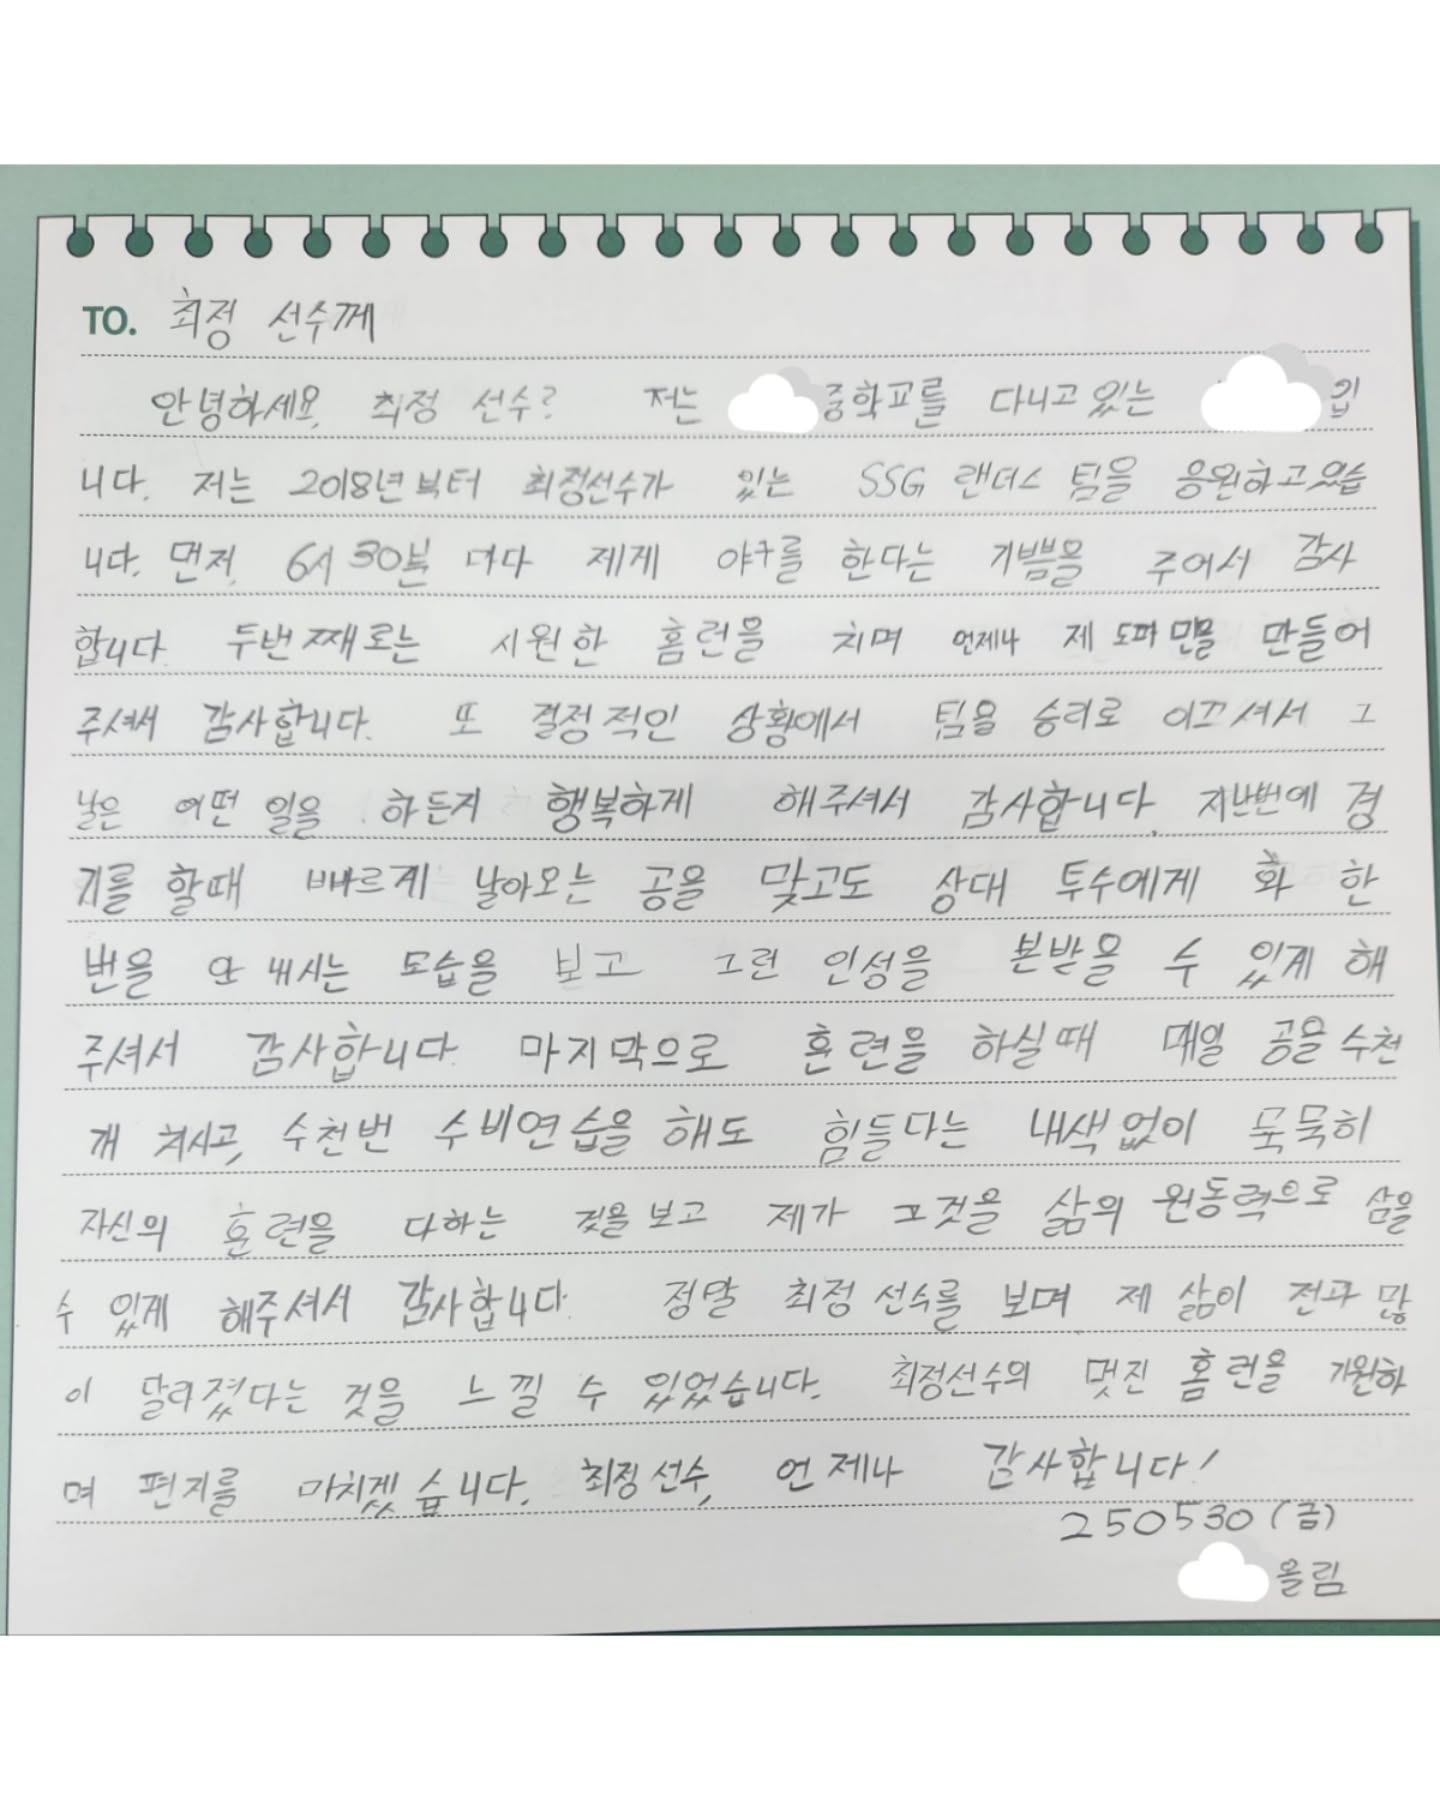 TO. 최정 선수께
안녕하세요, 최정 선수? 저는 중학교를 다니고 있는 입
니다. 저는 2018년부터 최정선수가 있는 SSG 랜더스 팀을 응원하고있습
니다. 먼저, 6시 30분 마다 제게 야구를 한다는 기쁨을 주어서 감사
합니다. 두번째로는 시원한 홈런을 치며 언제나 제 도파민을 만들어
주셔서 감사합니다. 또 결정적인 상황에서 팀을 승리로 이끄셔서 그
날은 어떤 일을 하든지 행복하게 해주셔서 감사합니다. 지난번에 경
기를 할때 빠르게 날아오는 공을 맞고도 상대 투수에게 화 한
번을 안 내시는 모습을 보고 그런 인성을 본받을 수 있게 해
주셔서 감사합니다. 마지막으로 훈련을 하실때 매일 공을 수천
개 치시고, 수천번 수비연습을 해도 힘들다는 내색없이 묵묵히
자신의 훈련을 다하는 것을 보고 제가 그것을 삶의 원동력으로 삼을
수 있게 해주셔서 감사합니다. 정말 최정 선수를 보며 제 삶이 전과 많
이 달라졌다는 것을 느낄 수 있었습니다. 최정선수의 멋진 홈런을 기원하
며 편지를 마치겠습니다. 최정 선수, 언제나 감사합니다!
250530 (금)
올림